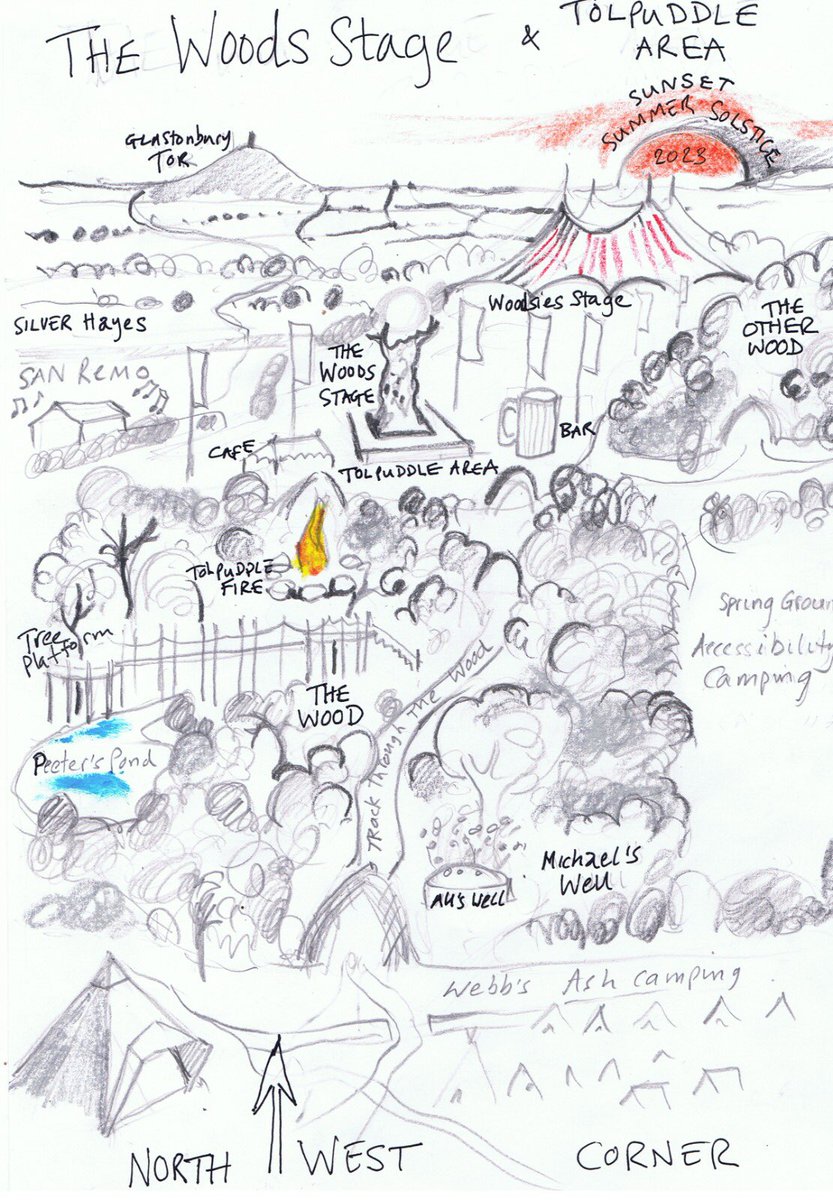 THE WOODS STAGE
& TOLPUDDLE
AREA
SUNSET
SUMMER SOLSTICE
2023
GLASTONBURY
TOR
Woodsies Stage
SILVER HAYES
THE
OTHER
WOOD
THE
WOODS
STAGE
SAN REMO
BAR
CAFE
TOLPUDDLE AREA
TOLPUDDLE
FIRE
Spring Groun
Accessibility
Camping
Tree
platform
THE
WOOD
Track Through The Wood
Peeter's Pond
Michael's
Well
All's Well
Webb's Ash camping
NORTH WEST CORNER